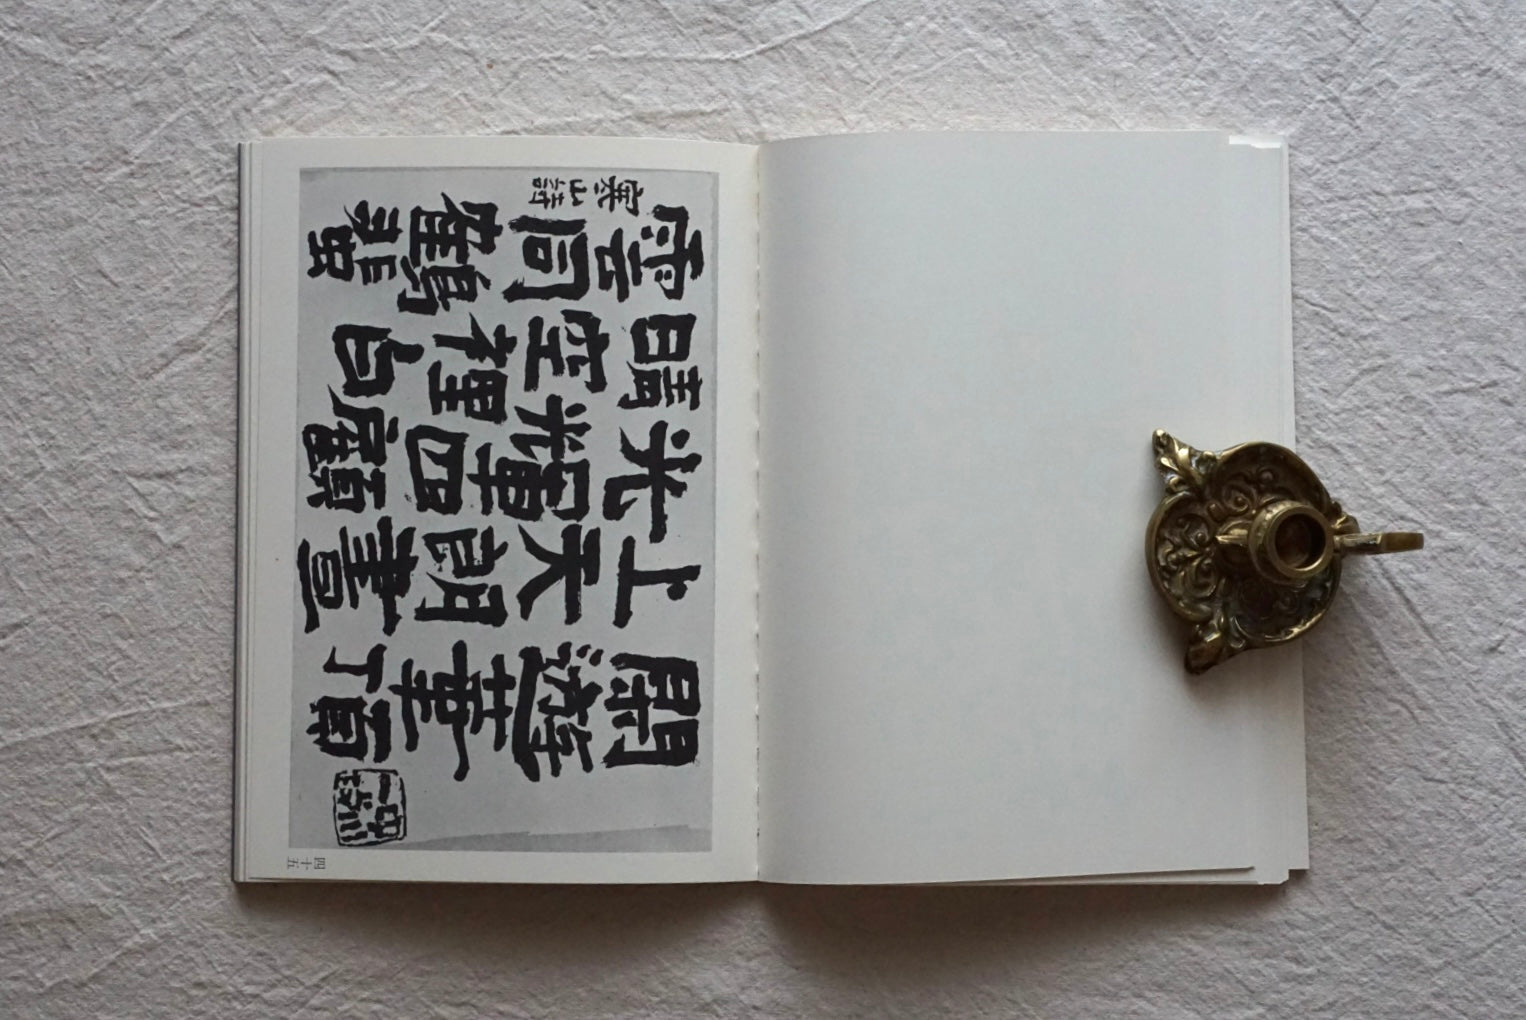 閑遊華頂
上天朗晝
光輝四顧
晴空裡白
雲同鶴飛
寒山詩
四十五